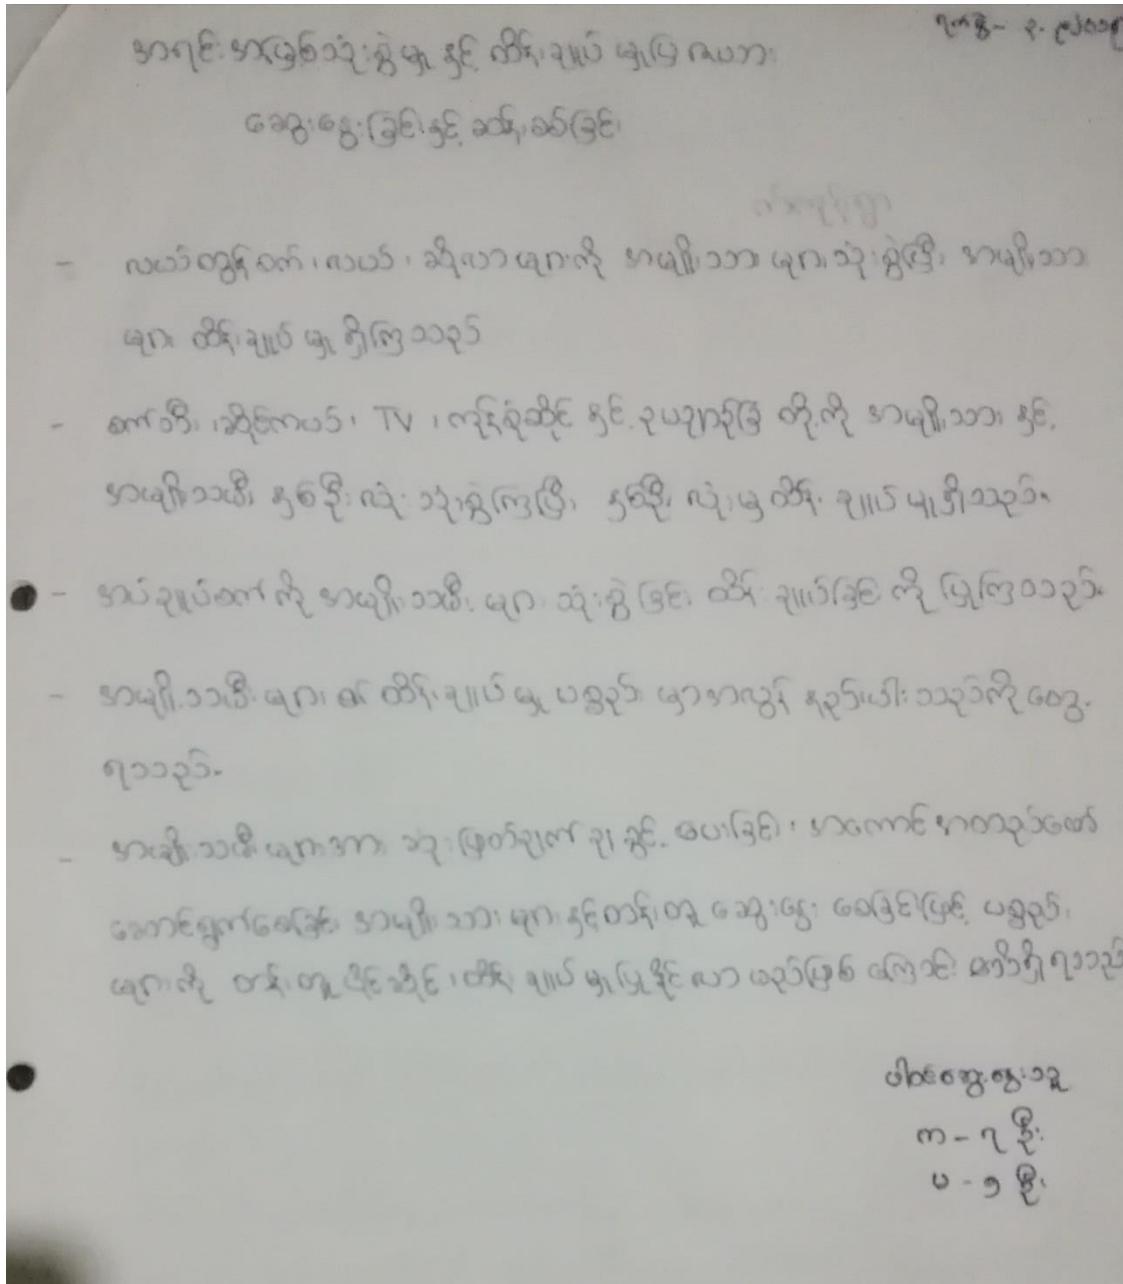 ရက်စွဲ -
အရင်းအမြစ်သုံးစွဲမှု နှင့် ထိန်းချုပ်မှုပြ ဇယား
ဆွေးနွေးခြင်းနှင့် ဆန်းစစ်ခြင်း
- လယ်ထွန်စက်၊ လယ်၊ ဆိုလာများကို အမျိုးသားများသုံးစွဲပြီး အမျိုးသား
များ ထိန်းချုပ်မှု ရှိကြသည်
- စက်ဘီး၊ ဆိုင်ကယ်၊ TV ၊ ကုန်စုံဆိုင် နှင့် ဥယျာဉ်ခြံ တို့ကို အမျိုးသား နှင့်
အမျိုးသမီး နှစ်ဦးလုံး သုံးစွဲကြပြီး နှစ်ဦးလုံးမှ ထိန်းချုပ်မှုရှိသည်။
- အပ်ချုပ်စက်ကို အမျိုးသမီးများ သုံးစွဲခြင်း ထိန်းချုပ်ခြင်းကို ပြုကြသည်။
- အမျိုးသမီးများ၏ ထိန်းချုပ်မှု ပစ္စည်းမှာအလွန် နည်းပါးသည်ကို တွေ့
ရသည်။
- အမျိုးသမီးများအား ဆုံးဖြတ်ချက်ချခွင့် ပေးခြင်း၊ အကောင်အထည်ဖော်
ဆောင်ရွက်စေခြင်း အမျိုးသားများနှင့်တန်းတူ ဆွေးနွေးစေခြင်းဖြင့် ပစ္စည်း
များကို တန်းတူပိုင်ဆိုင်၊ ထိန်းချုပ်မှုပြုနိုင်လာမည်ဖြစ်ကြောင်း သိရှိရသည်
ပါဝင်ဆွေးနွေးသူ
က - ၇ ဦး
မ - ၅ ဦး